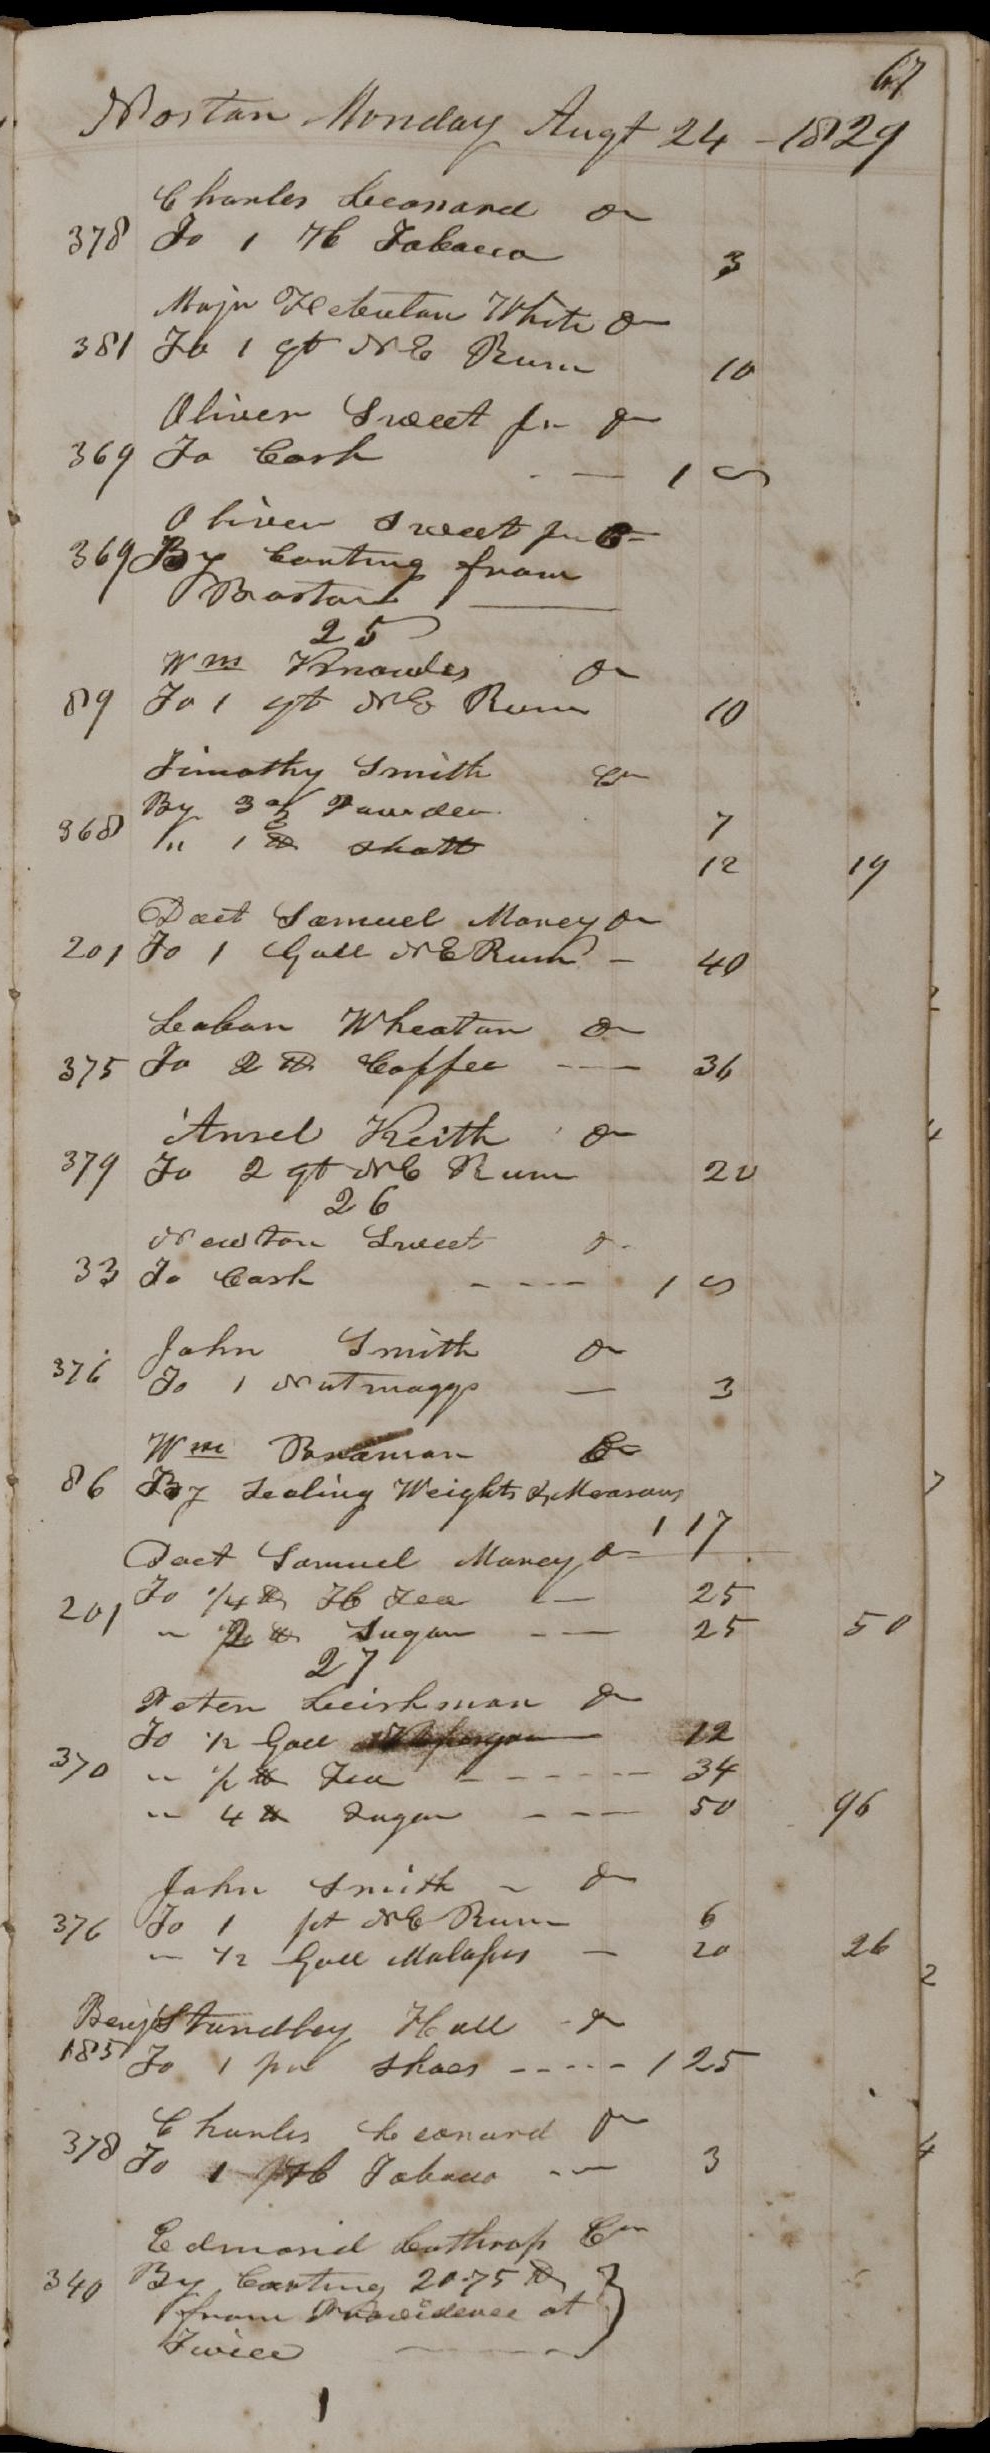 67
Norton Monday Augt 24 - 1829
Charles Leonard Dr
378 To 1 Hd Tobacco 3
Majr White Dr
381 To 1 qt N E Rum 10
Oliver Sweet Jr Dr
369 To Cash - — 1 00
Oliver Sweet Jr Cr
369 By Carting from
Boston
25
Wm Knowles Dr
89 To 1 qt N E Rum 10
Timothy Smith Cr
By 3 oz Powder 7
368 " 1 lb Shott 12 19
Doct Samuel Morey Dr
201 To 1 Gall N E Rum - 40
Laban Wheaton Dr
375 To 2 lb Coffee --- 36
Ansel Keith Dr
379 To 2 qt N E Rum 20
26
Newton Sweet Dr
33 To Cash ---- 1 00
John Smith Dr
376 To 1 Nutmaggs — 3
Wm Braman Cr
86 By Sealing Weights & Measurs
1 17
Doct Samuel Morey Dr
To 1/4 lb H Tea -- 25
201 " 2 lb Sugar --- 25 50
27
Peter Leishman Dr
To 1/2 Gall 12
370 " 1/2 lb Tea ------ 34
" 4 lb Sugar --- 50 96
John Smith - Dr
376 To 1 pt N E Rum 6
" 1/2 Gall Molasses — 20 26
Benj Standley Hall Dr
185 To 1 pr Shoes ---- 1 25
Charles Leonard Dr
378 To 1 Hd Tobacco --- 3
Edmond Lothrop Cr
340 By Carting 2075 lb
from Providence at
Twice